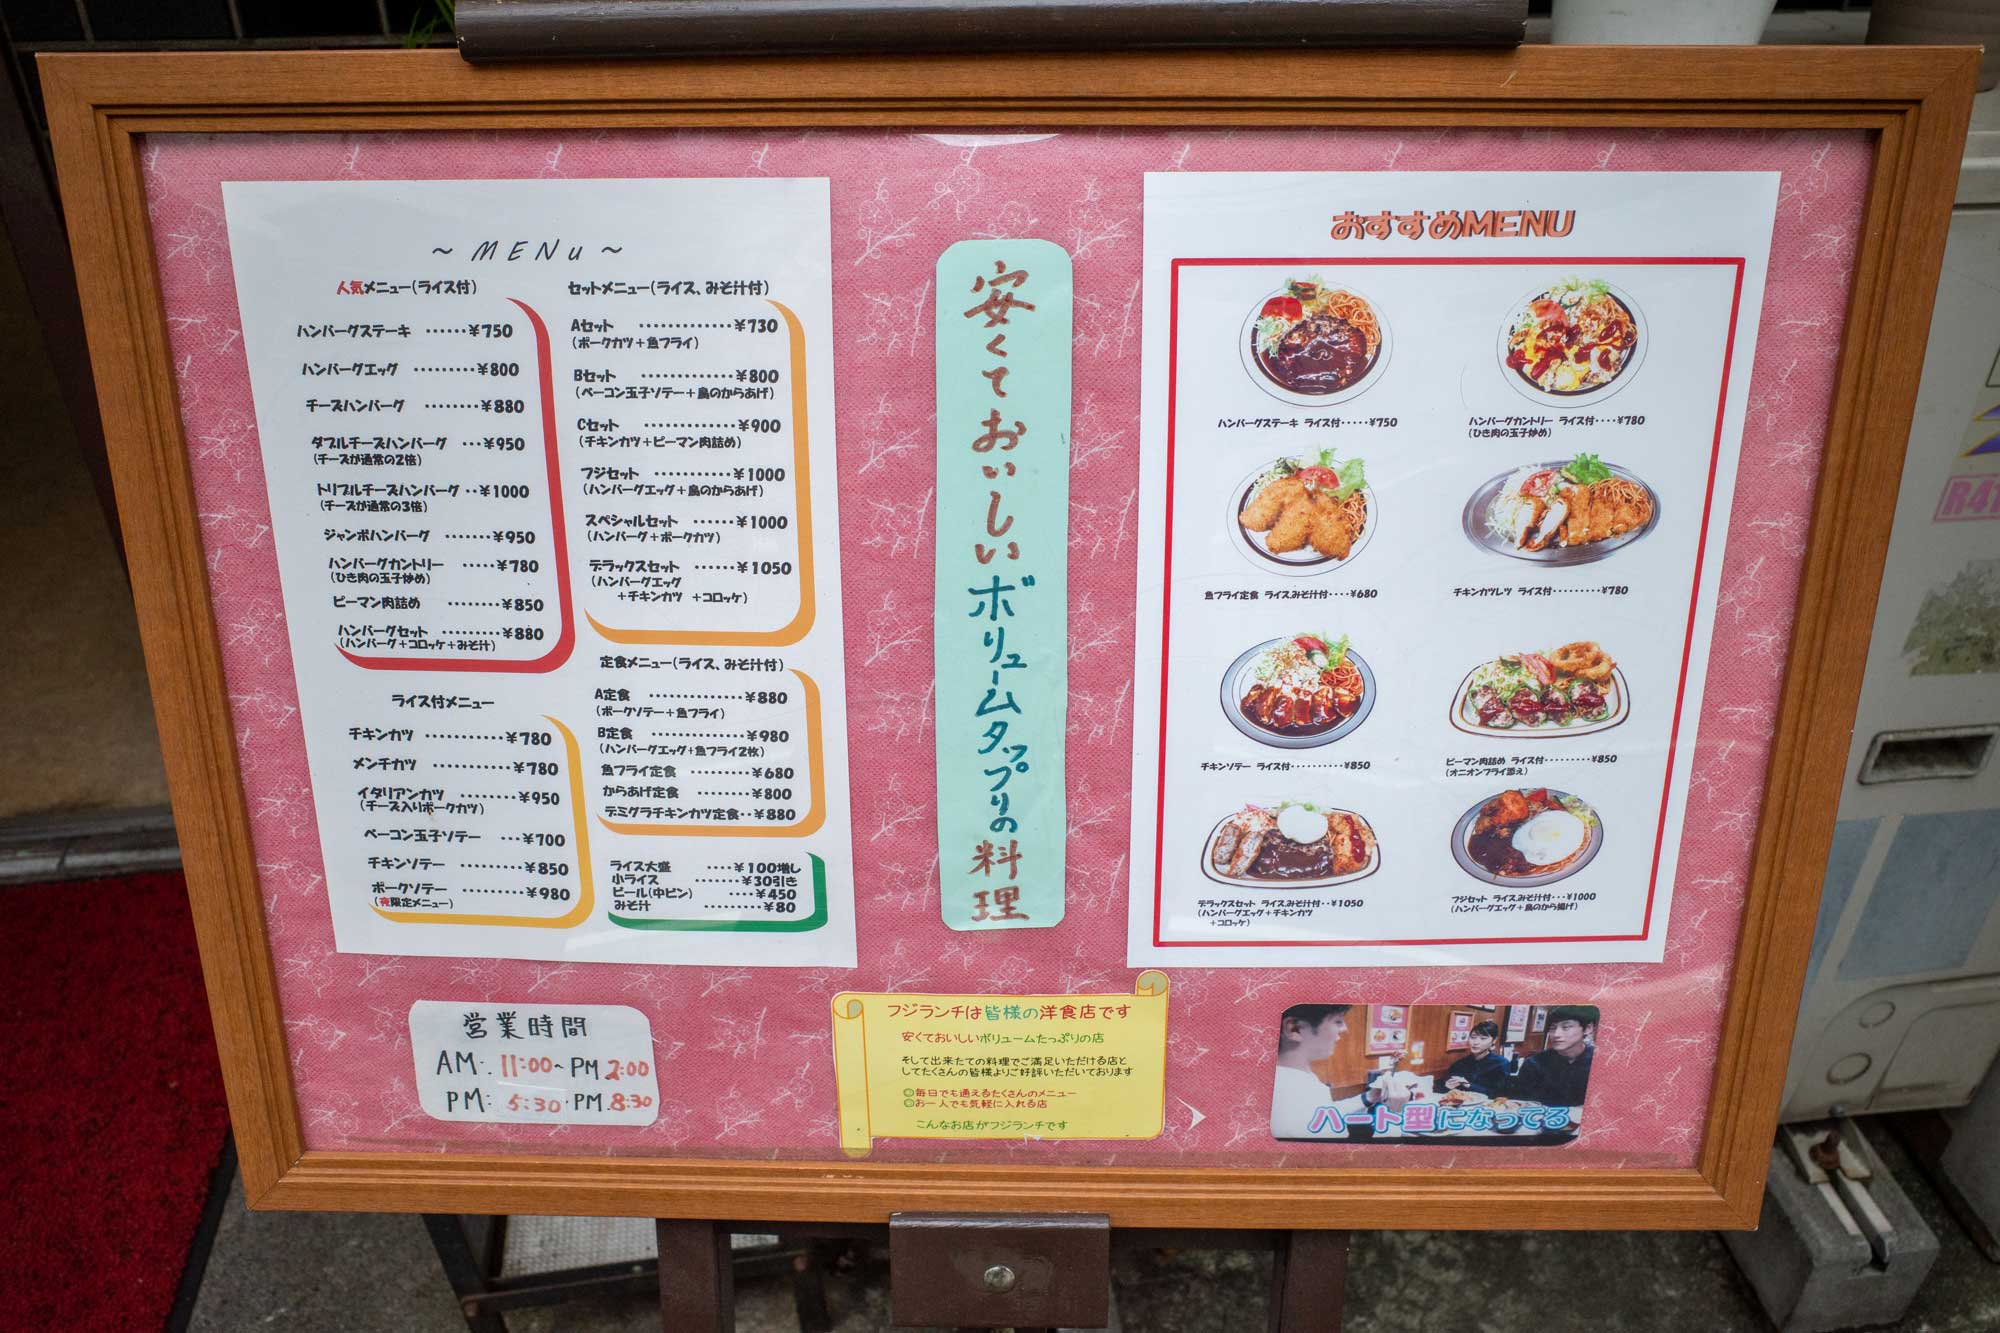 ～MENu～
人気メニュー(ライス付)
ハンバーグステーキ ……¥750
ハンバーグエッグ ………¥800
チーズハンバーグ ………¥880
ダブルチーズハンバーグ …¥950
(チーズが通常の2倍)
トリプルチーズハンバーグ ‥¥1000
(チーズが通常の3倍)
ジャンボハンバーグ ………¥950
ハンバーグカントリー ……¥780
(ひき肉の玉子炒め)
ピーマン肉詰め ………¥850
ハンバーグセット ………¥880
(ハンバーグ+コロッケ+みそ汁)
ライス付メニュー
チキンカツ …………¥780
メンチカツ …………¥780
イタリアンカツ ………¥950
(チーズ入りポークカツ)
ベーコン玉子ソテー …¥700
チキンソテー ………¥850
ポークソテー ………¥980
(夜限定メニュー)
セットメニュー(ライス、みそ汁付)
Aセット …………¥730
(ポークカツ+魚フライ)
Bセット …………¥800
(ベーコン玉子ソテー+鳥のからあげ)
Cセット …………¥900
(チキンカツ+ピーマン肉詰め)
フジセット …………¥1000
(ハンバーグエッグ+鳥のからあげ)
スペシャルセット ……¥1000
(ハンバーグ+ポークカツ)
デラックスセット ……¥1050
(ハンバーグエッグ
+チキンカツ +コロッケ)
定食メニュー(ライス、みそ汁付)
A定食 …………¥880
(ポークソテー+魚フライ)
B定食 …………¥980
(ハンバーグエッグ+魚フライ2枚)
魚フライ定食 ………¥680
からあげ定食 ………¥800
デミグラチキンカツ定食‥¥880
ライス大盛 ‥‥¥100増し
小ライス ………¥30引き
ビール(中ビン) ‥‥¥450
みそ汁 …………¥80
安くておいしいボリュームタップリの料理
おすすめMENU
ハンバーグステーキ ライス付‥‥‥¥750
ハンバーグカントリー ライス付‥‥¥780
(ひき肉の玉子炒め)
魚フライ定食 ライス,みそ汁付‥‥¥680
チキンカツレツ ライス付………¥780
チキンソテー ライス付…………¥850
ピーマン肉詰め ライス付…………¥850
(オニオンフライ添え)
デラックスセット ライス,みそ汁付‥¥1050
(ハンバーグエッグ+チキンカツ
+コロッケ)
フジセット ライス,みそ汁付…¥1000
(ハンバーグエッグ+鳥のから揚げ)
営業時間
AM:. 11:00~PM 2:00
PM: 5:30・PM 8:30
フジランチは皆様の洋食店です
安くておいしいボリュームたっぷりの店
そして出来たての料理でご満足いただける店と
してたくさんの皆様よりご好評いただいております
◎毎日でも通えるたくさんのメニュー
◎お一人でも気軽に入れる店
こんなお店がフジランチです
ハート型になってる
R41